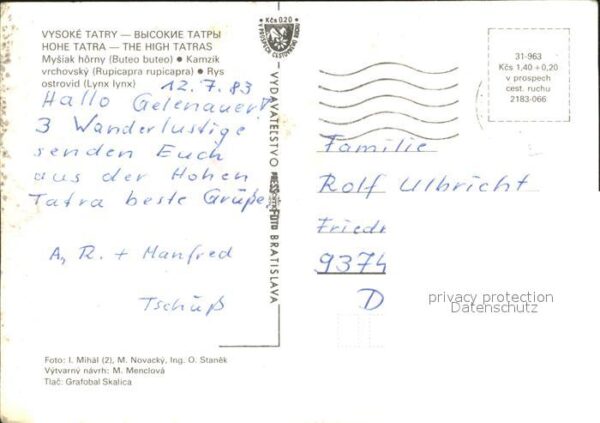 VYSOKÉ TATRY — ВЫСОКИЕ ТАТРЫ
HOHE TATRA — THE HIGH TATRAS
Myšiak hôrny (Buteo buteo) ● Kamzík
vrchovský (Rupicapra rupicapra) ● Rys
ostrovid (Lynx lynx)
12.7.83
Hallo Gelenauer!
3 Wanderlustige
senden Euch
aus der Hohen
Tatra beste Grüße
A, R. + Manfred
Tschüß
Foto: I. Mihál (2), M. Novacký, Ing. O. Staněk
Výtvarný návrh: M. Menclová
Tlač: Grafobal Skalica
Kčs 0,20
V PROSPECH CESTOVNÉHO RUCHU
VYDAVATEĽSTVO PRESSFOTO BRATISLAVA
31-963
Kčs 1,40 + 0,20
v prospech
cest. ruchu
2183-066
Familie
Rolf Ulbricht
Friedr
9374
D
privacy protection
Datenschutz